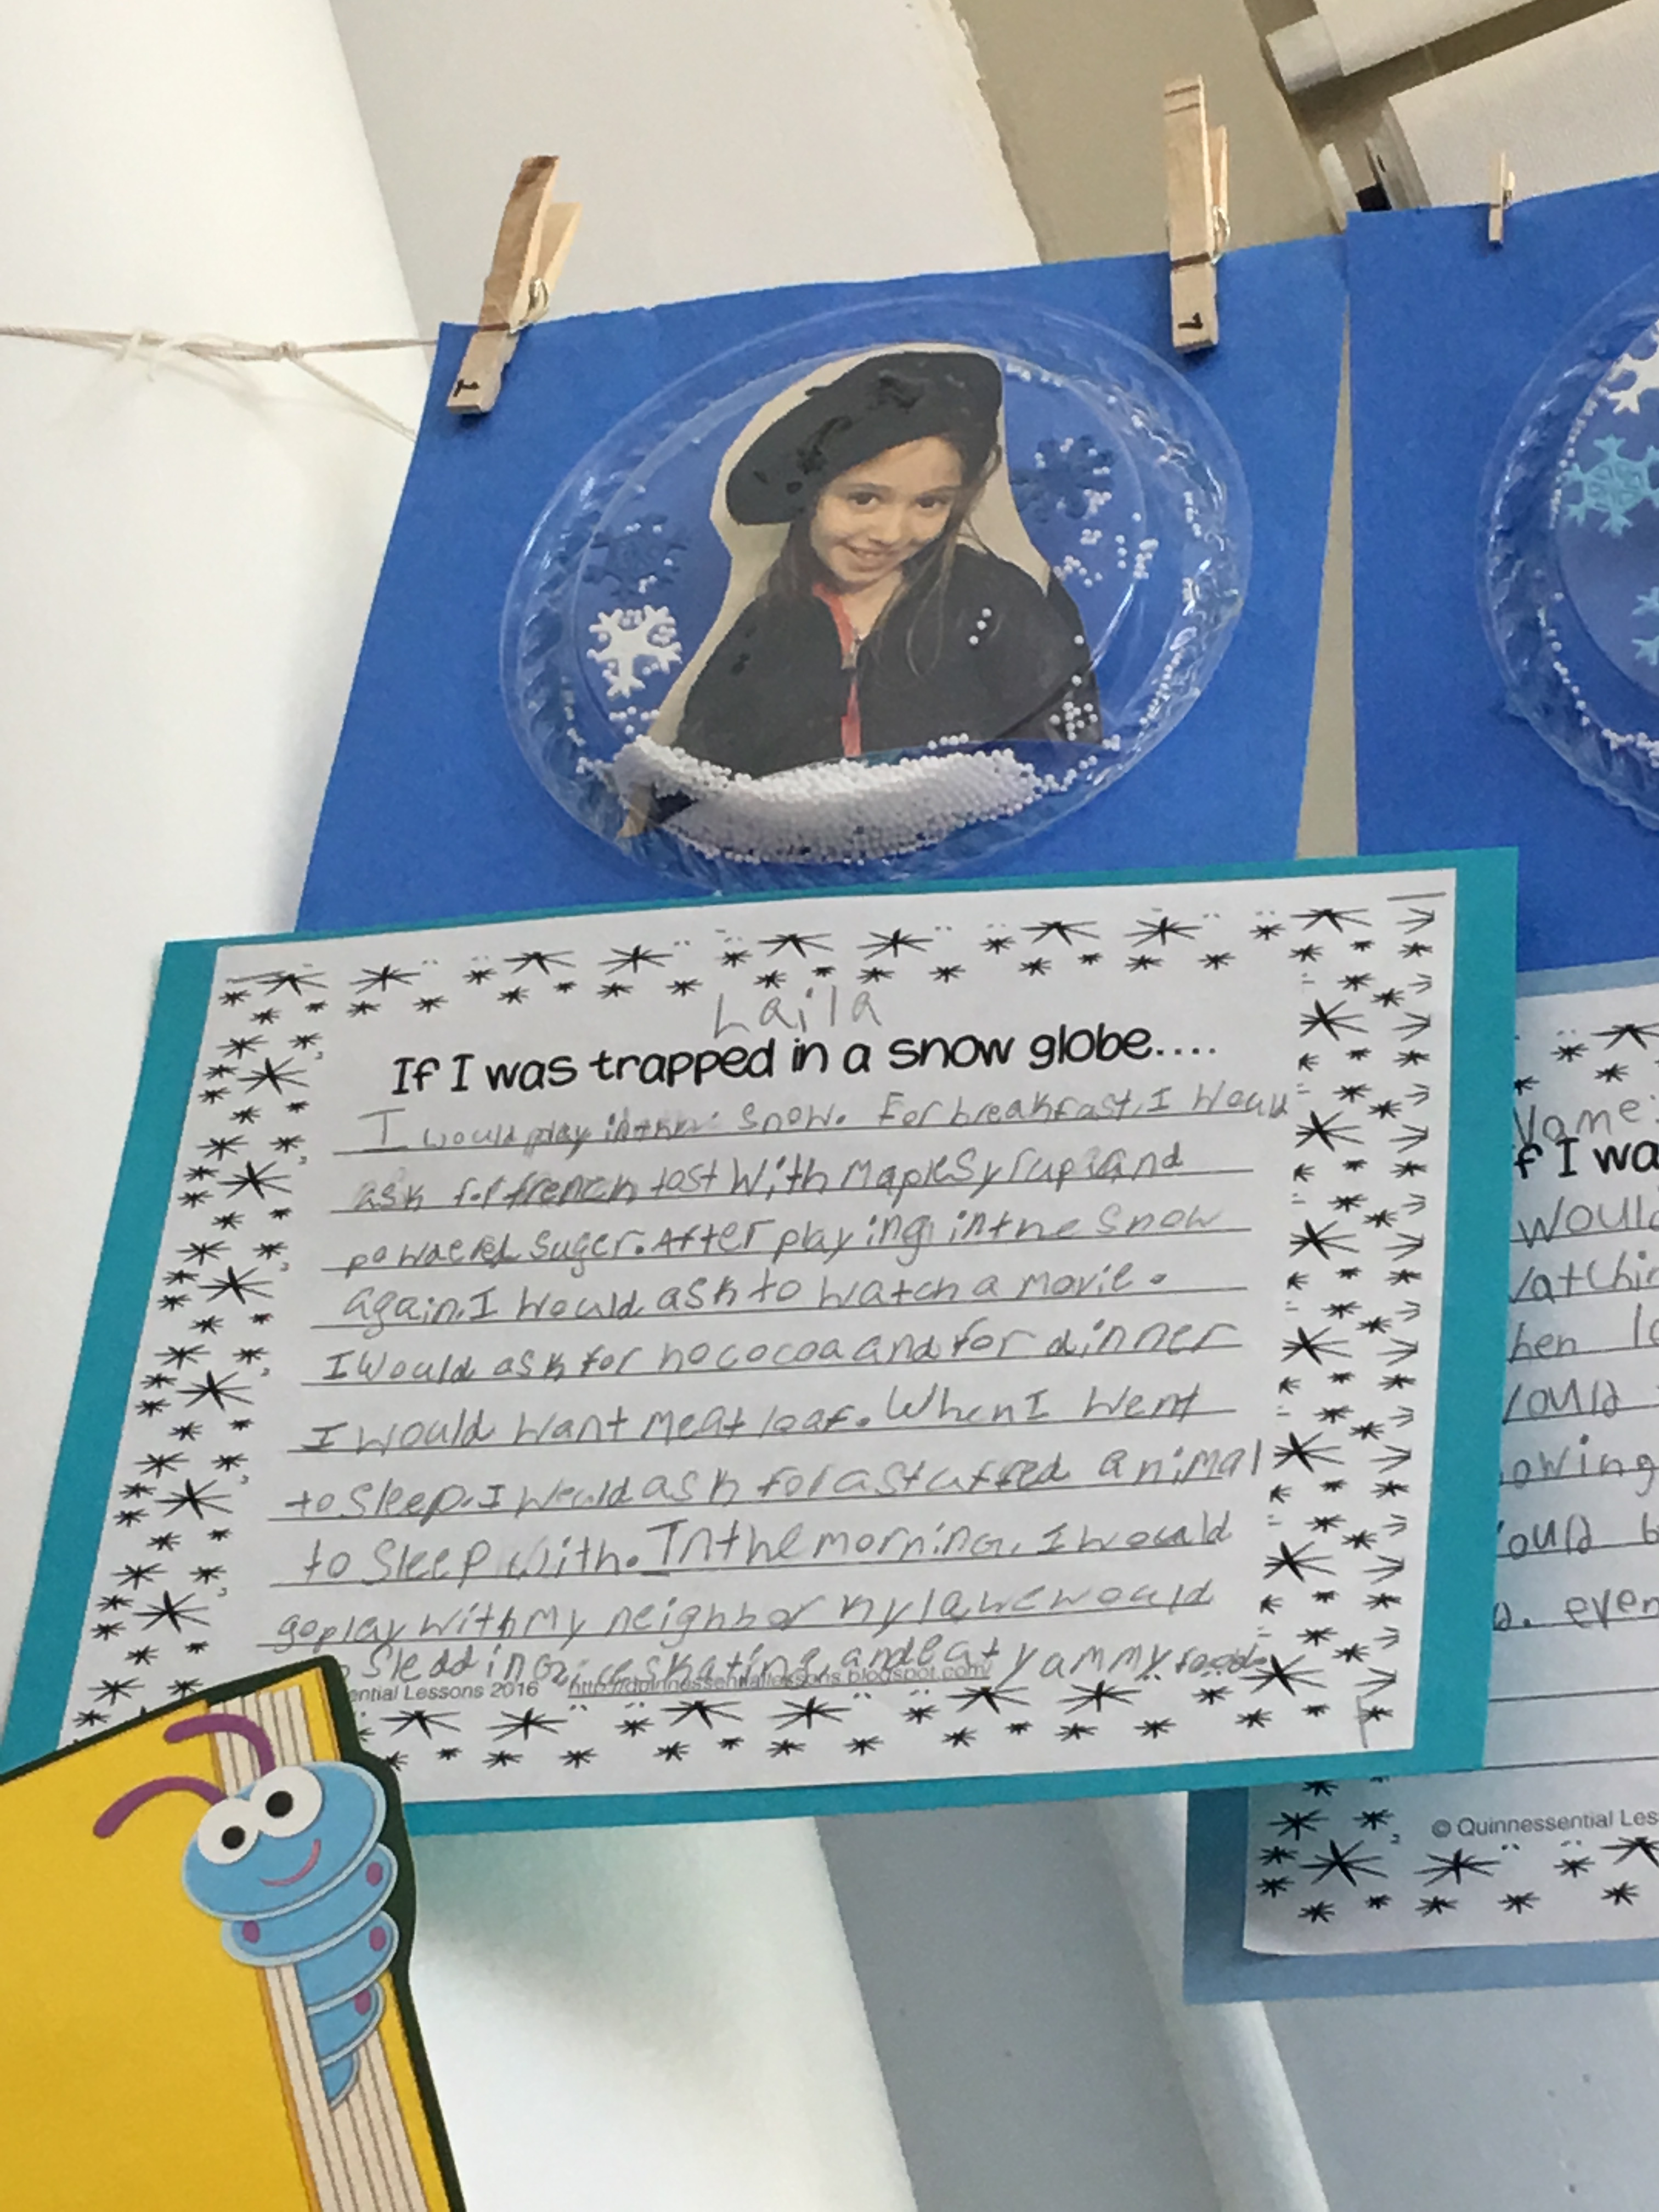 1
1
Laila
If I was trapped in a snow globe....
I would play in the snow. For breakfast, I would
ask for french tost with maple syrup and
powdered suger. After playing in the snow
again, I would ask to watch a movie.
I would ask for hococoa and for dinner
I would want meat loaf. When I went
to sleep, I would ask for a stuffed animal
to sleep with. In the morning, I would
go play with my neighbor nyla, we would
Sledding, ice skating, and eat yammy food.
ential Lessons 2016 http://dquinnessentiallessons.blogspot.com/
Name:
f I wa
would
atchin
hen
ould
owing
ould b
. even
© Quinnessential Les